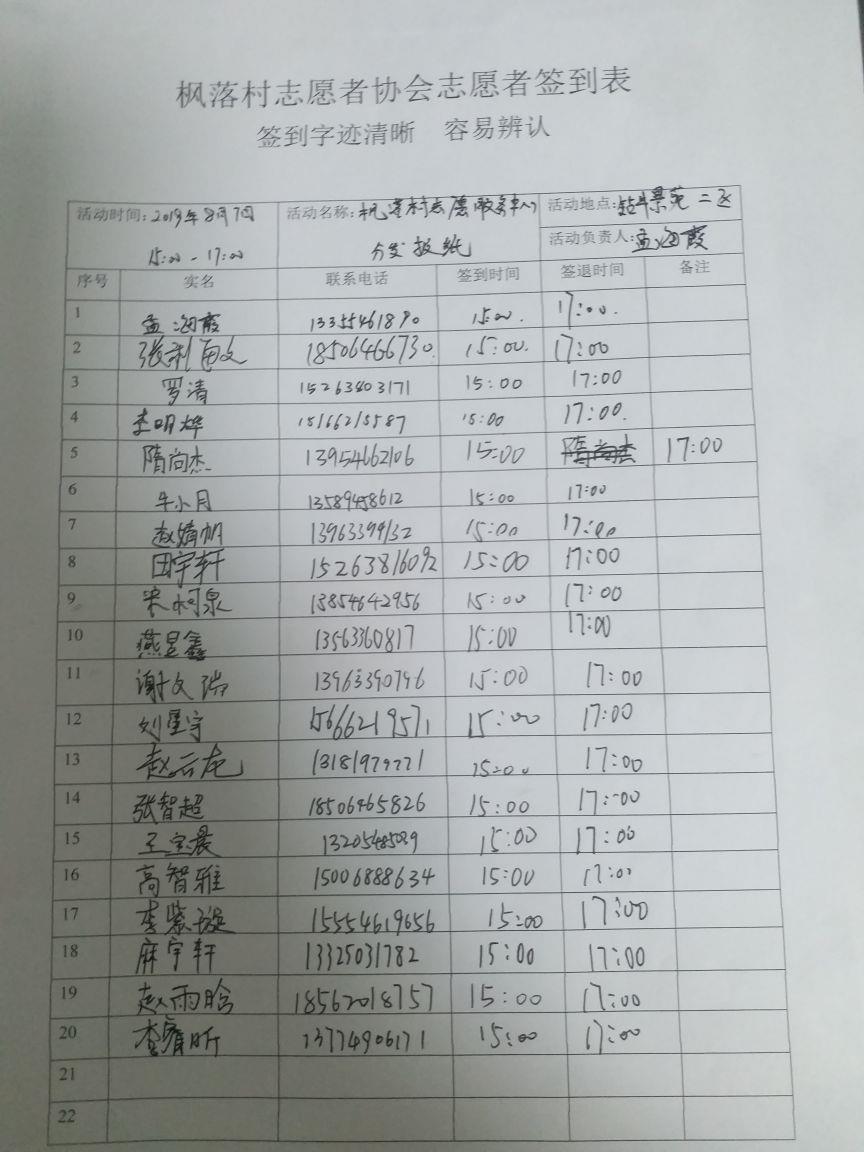 枫落村志愿者协会志愿者签到表
签到字迹清晰 容易辨认
活动时间:2019年8月7日 活动名称:枫落村志愿服务中心 活动地点:景苑二区
15:00-17:00 分发报纸 活动负责人:孟海霞
序号 实名 联系电话 签到时间 签退时间 备注
1 孟海霞 13355461890 15:00. 17:00.
2 张利 18506466730. 15:00. 17:00
3 罗清 15263803171 15:00 17:00
4 李明烨 15166215587 15:00 17:00.
5 隋尚杰 13954662106 15:00 隋尚杰 17:00
6 牛小月 13589458612 15:00 17:00
7 赵婧帆 13963399132 15:00 17:00
8 田宇轩 15263816092 15:00 17:00
9 宋柯泉 13854642956 15:00 17:00
10 燕昱鑫 13563360817 15:00 17:00
11 谢文瑞 13963390796 15:00 17:00
12 刘星宇 15666219571 15:00 17:00
13 赵云龙 15:00 17:00
14 张智超 18506465826 15:00 17:00
15 王宝晨 15:00 17:00
16 高智雅 15006888634 15:00 17:00
17 李紫璇 15554619656 15:00 17:00
18 麻宇轩 13325031782 15:00 17:00
19 赵雨晗 18562018757 15:00 17:00
20 13774906171 15:00 17:00
21
22